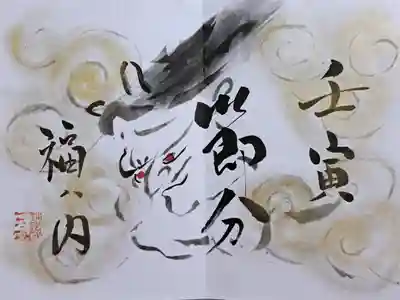 壬寅
節分
福ハ内